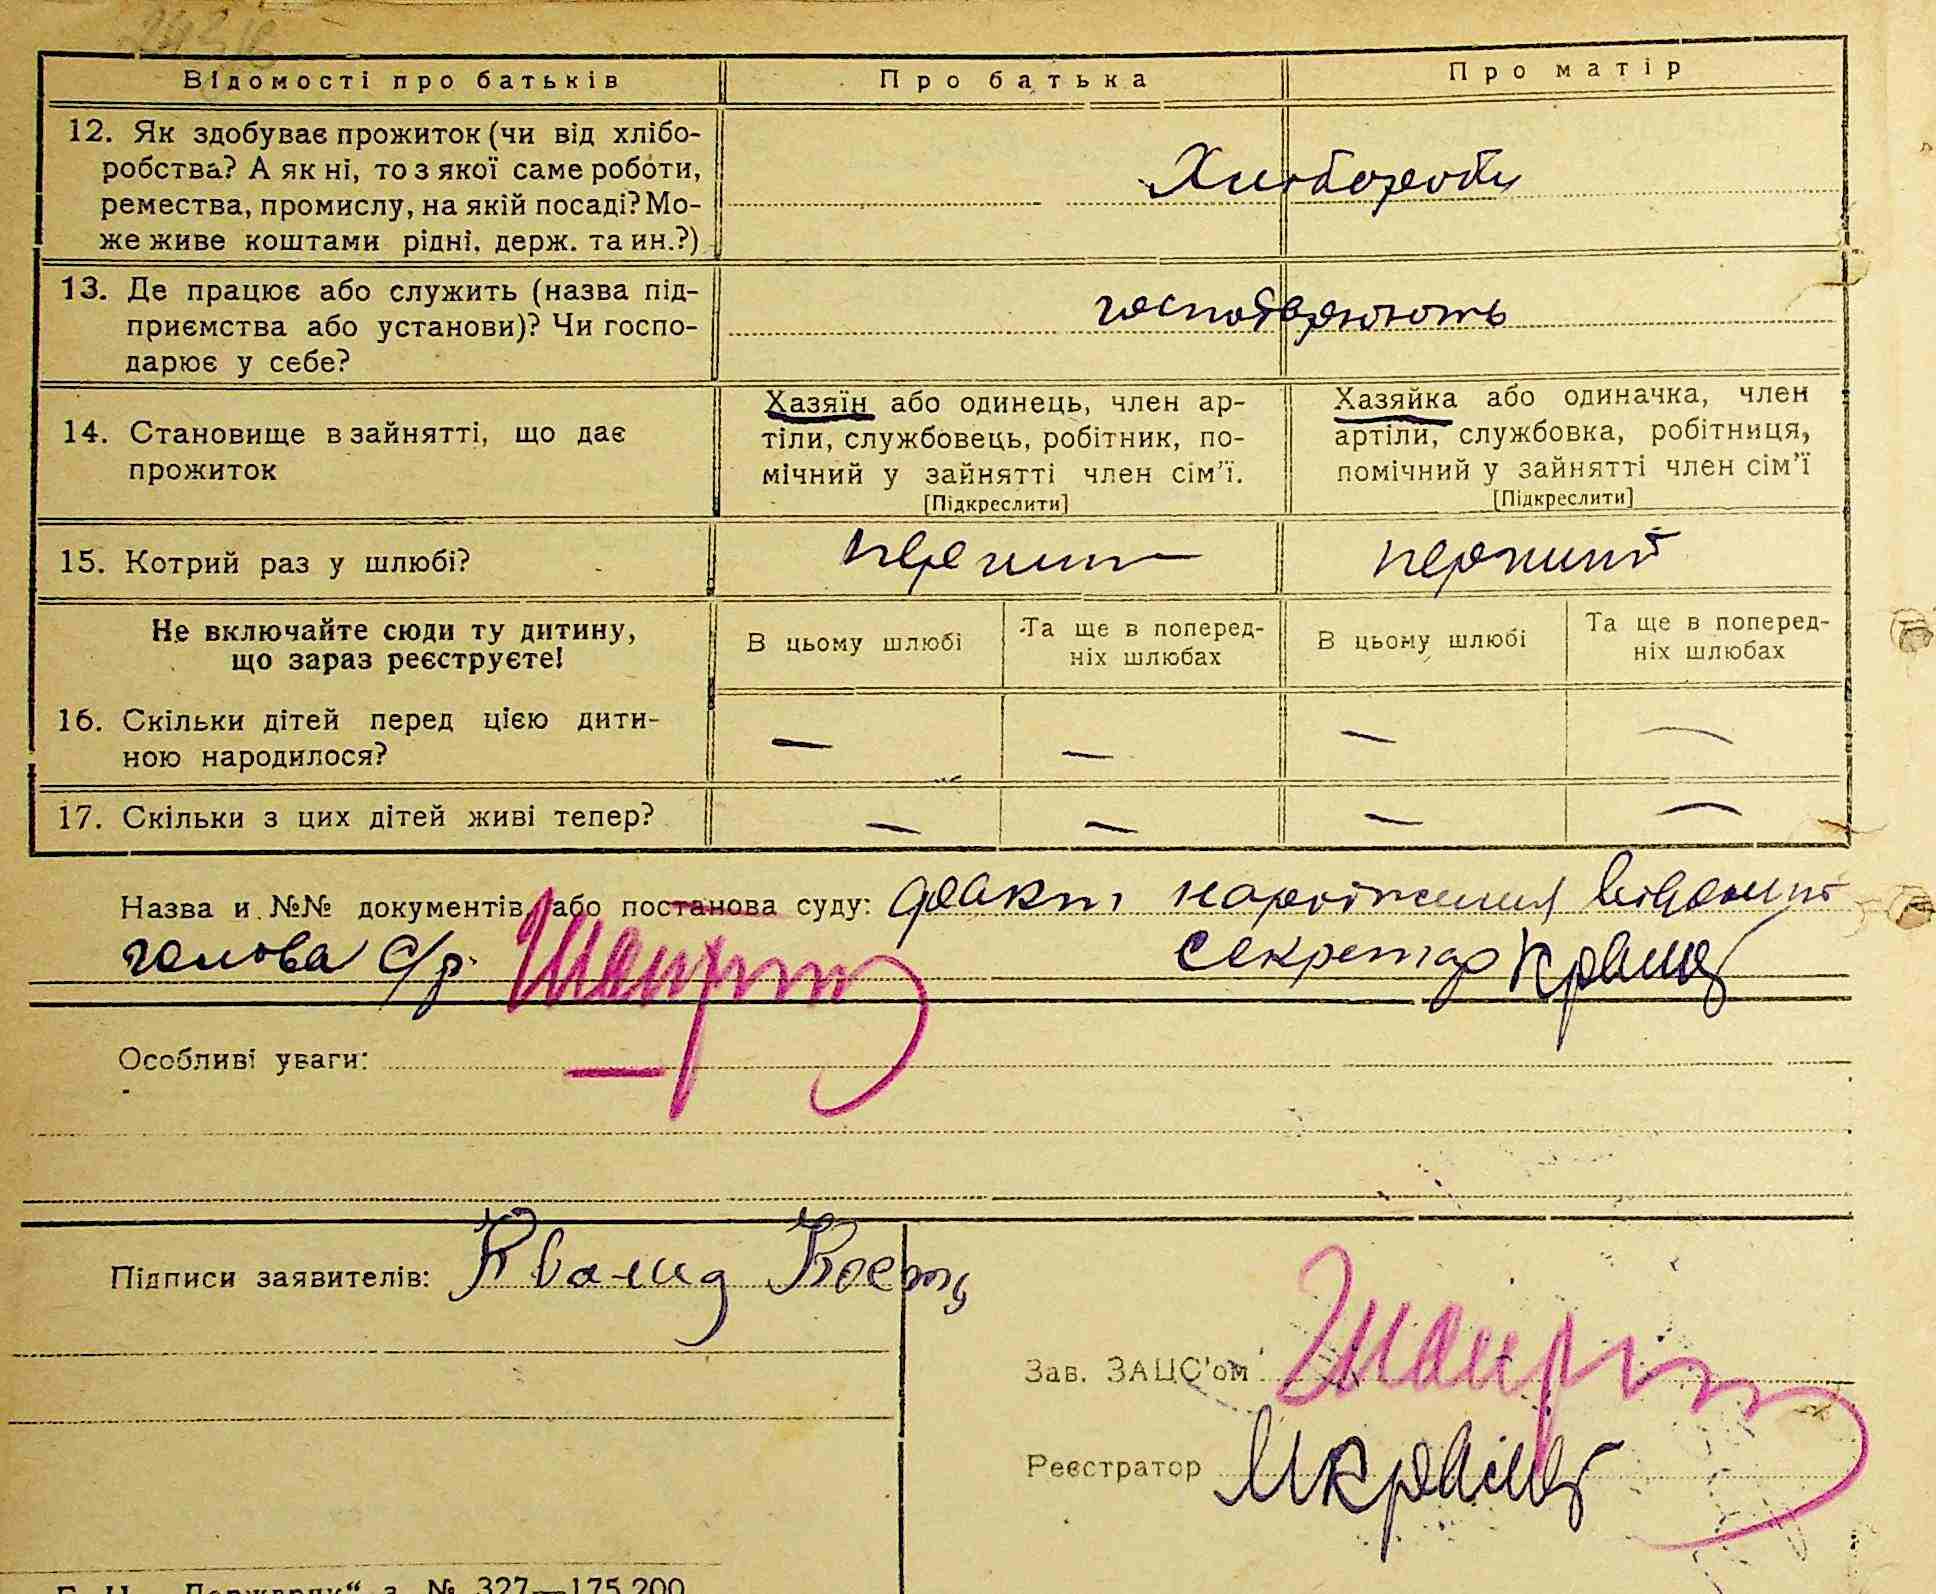 Відомості про батьків Про батька Про матір
12. Як здобуває прожиток (чи від хлібо-
робства? А як ні, то з якої саме роботи,
ремества, промислу, на якій посаді? Мо-
же живе коштами рідні, держ. та ин.?)
Хлібороби
13. Де працює або служить (назва під-
приємства або установи)? Чи госпо-
дарює у себе?
господарюють
14. Становище в зайнятті, що дає
прожиток
Хазяїн або одинець, член ар-
тіли, службовець, робітник, по-
мічний у зайнятті член сім'ї.
[Підкреслити]
Хазяйка або одиначка, член
артіли, службовка, робітниця,
помічний у зайнятті член сім'ї
[Підкреслити]
15. Котрий раз у шлюбі? перший перший
Не включайте сюди ту дитину,
що зараз реєструєте!
В цьому шлюбі
Та ще в поперед-
ніх шлюбах
В цьому шлюбі
Та ще в поперед-
ніх шлюбах
16. Скільки дітей перед цією дити-
ною народилося?
— — — —
17. Скільки з цих дітей живі тепер? — — — —
Назва и №№ документів, або постанова суду: факт народження відомий
голова с/р. секретар
Особливі уваги: —
Підписи заявителів:
Зав. ЗАЦС'ом
Реєстратор
№ 327—175.200